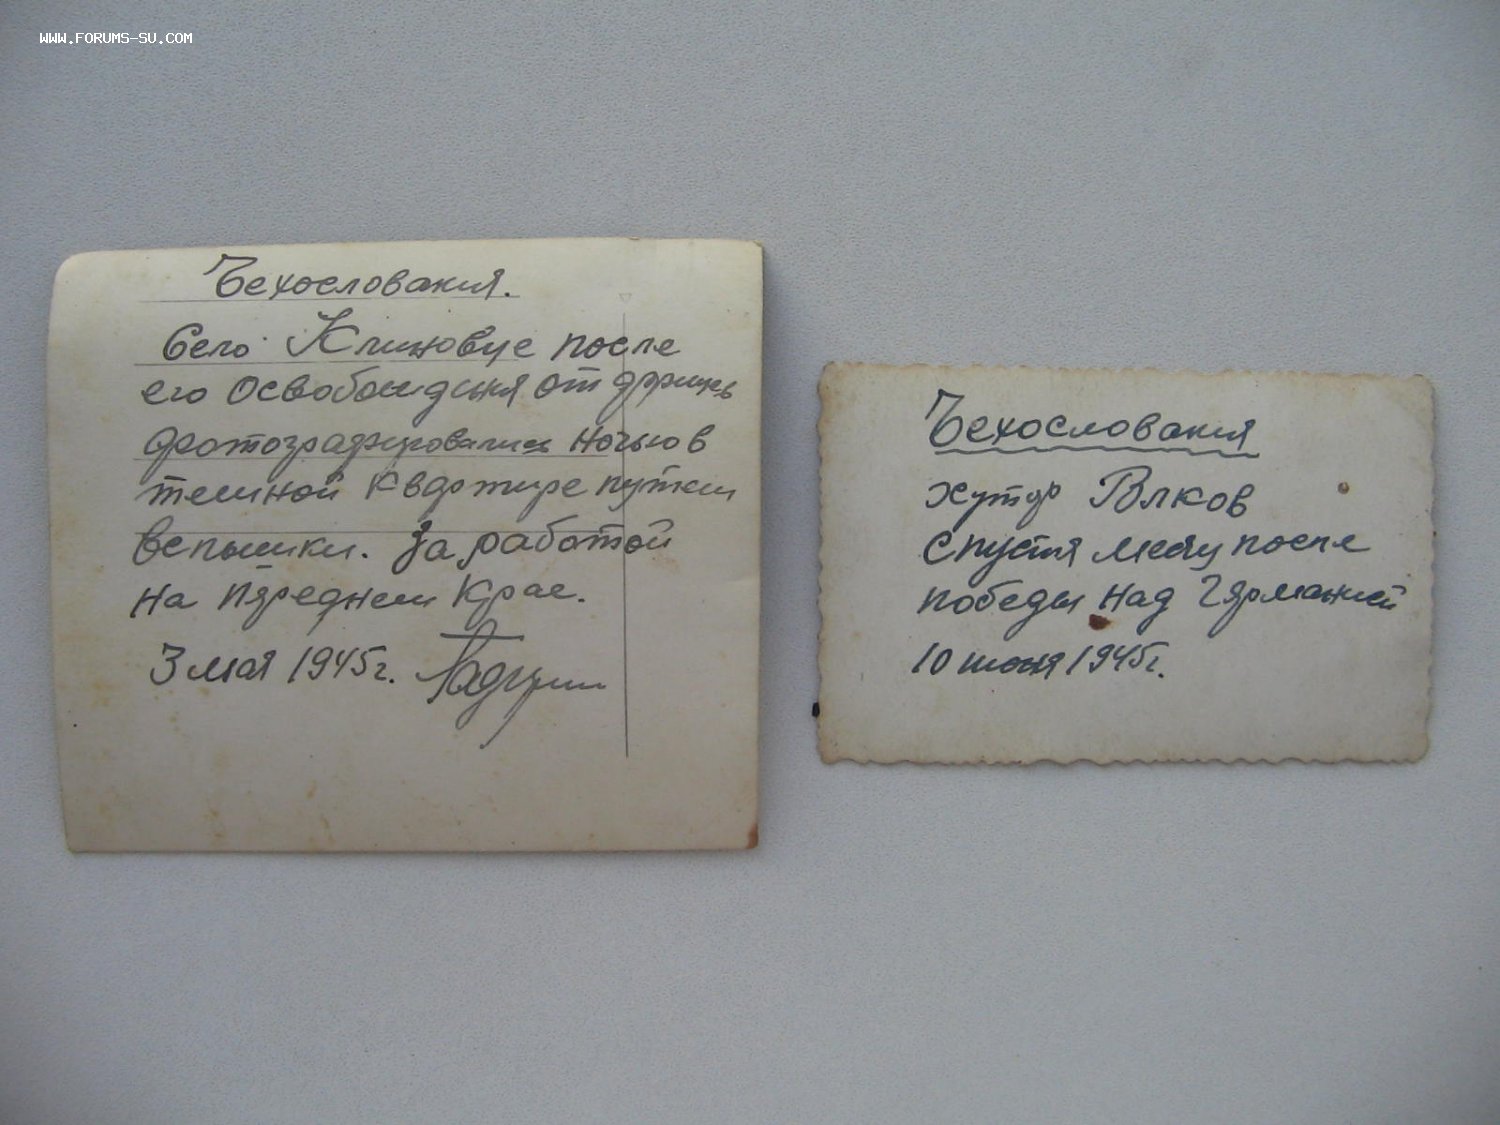 WWW.FORUMS-SU.COM
Чехословакия.
Село Клиновце после
его освобождения от фрицев
фотографировались ночью в
темной квартире путем
вспышки. За работой
на переднем крае.
3 мая 1945г.
Чехословакия
хутор Влков
спустя месяц после
победы над Германией
10 июня 1945г.